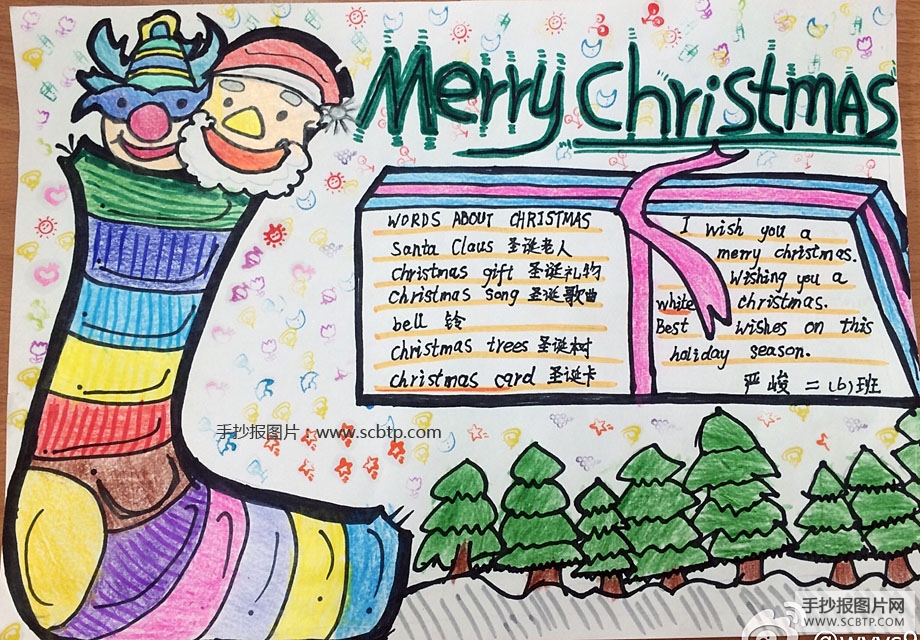 Merry Christmas
WORDS ABOUT CHRISTMAS
Santa Claus 圣诞老人
christmas gift 圣诞礼物
christmas song 圣诞歌曲
bell 铃
christmas trees 圣诞树
christmas card 圣诞卡
I wish you a
merry christmas.
Wishing you a
white christmas.
Best wishes on this
holiday season.
严峻 二(6)班
手抄报图片：www.scbtp.com
手抄报图片网
WWW.SCBTP.COM